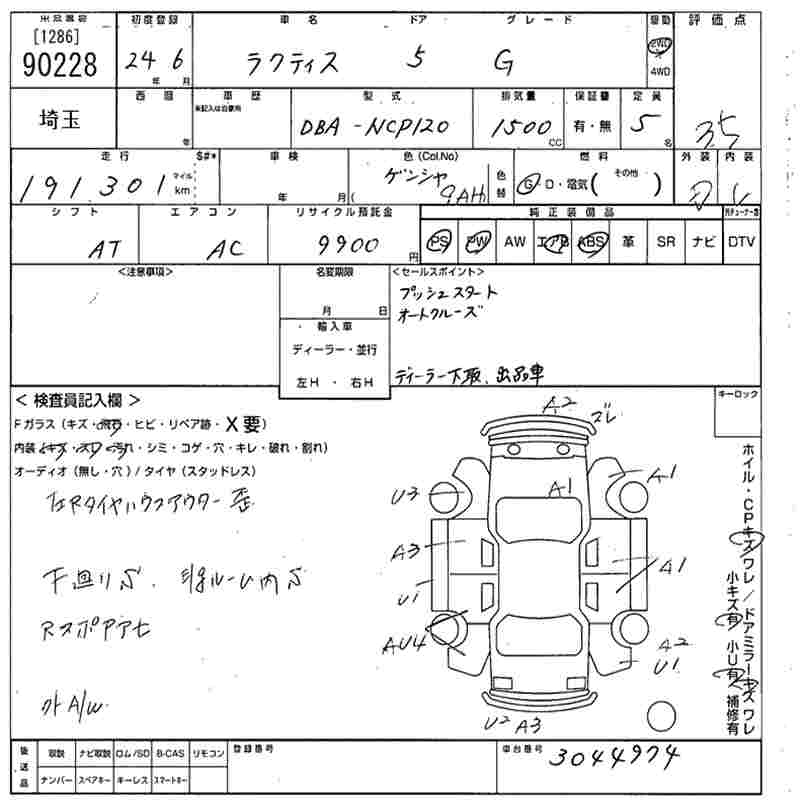 出品番号 初度登録 車名 ドア グレード 駆動 評価点
[1286]
90228 24 6 ラクティス 5 G 2WD
年 月 4WD
西暦 車歴 型式 排気量 保証書 定員
※記入は自家用
埼玉 DBA-NCP120 1500 有・無 5 35
年 CC 名
走行 $#* 車検 色(Col.No) 燃料 外装 内装
191,301 マイル km ゲンシャ 色替 G・D・電気( その他 ) D
年 月( 9AH)
シフト エアコン リサイクル預託金 純正装備品
AT AC 9900 円 PS PW AW エアB ABS 革 SR ナビ DTV
<注意事項> 名変期限 <セールスポイント>
プッシュスタート
月 日 オートクルーズ
輸入車
ディーラー・並行
左H・右H ディーラー下取、出品車
< 検査員記入欄 > キーロック
Fガラス(キズ・飛石・ヒビ・リペア跡・X要)
内装(キズ・スレ・汚れ・シミ・コゲ・穴・キレ・破れ・割れ)
オーディオ(無し・穴)/タイヤ(スタッドレス)
左Rタイヤハウスアウター歪
下廻りS、 ルーム内S
Rスポアアセ
外A/W
A2 ズレ
U3 A1 A1
A3 A1
U1
AU4 A2
U1
U2 A3
ホイル・CPキズワレ/ドアミラーキズワレ
小キズ有 小U有 補修有
後送品 取説 ナビ取説 ロム/SD B-CAS リモコン 登録番号 車台番号
ナンバー スペアキー キーレス スマートキー 3044974